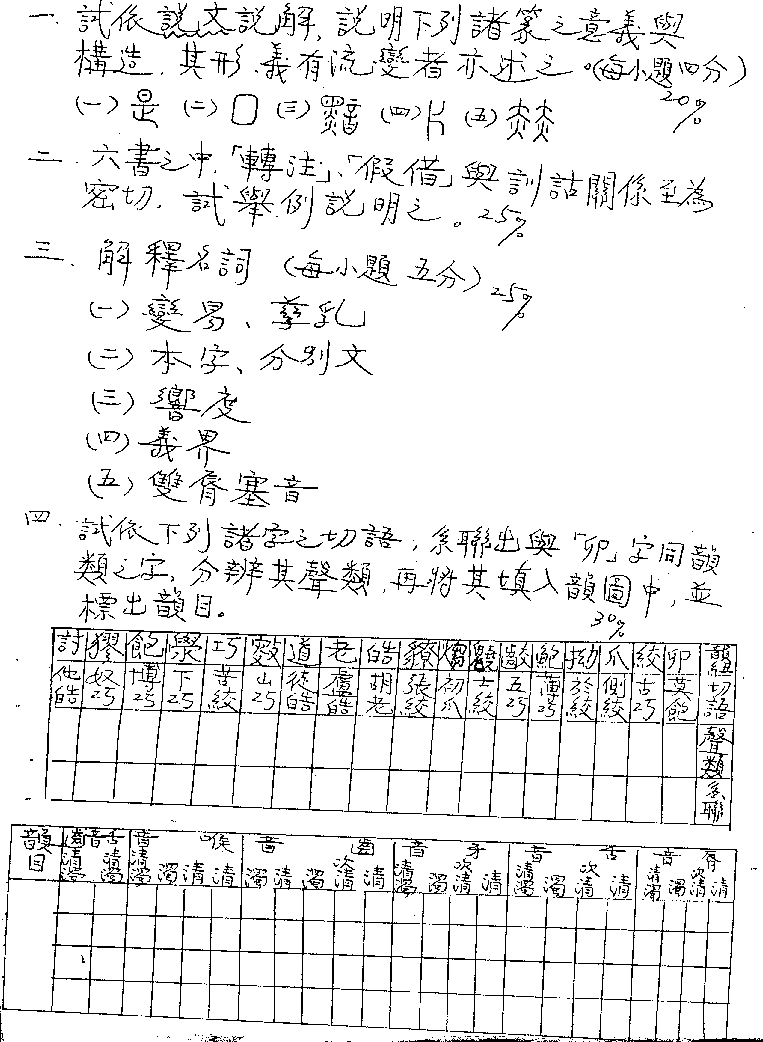 一、試依說文說解，說明下列諸篆之意義與
構造，其形、義有流變者亦述之。(每小題四分)
20%
(一)是 (二)口 (三) (四) (五)
二、六書之中，「轉注」、「假借」與訓詁關係至為
密切，試舉例說明之。25%
三、解釋名詞 (每小題五分) 25%
(一)變易、孳乳
(二)本字、分別文
(三)響度
(四)義界
(五)雙脣塞音
四、試依下列諸字之切語，系聯出與「卯」字同韻
類之字，分辨其聲類，再將其填入韻圖中，並
標出韻目。30%
討 獿 飽 澩 巧 道 老 皓 獠 鮑 拗 爪 絞 卯 切語
他皓 奴巧 博巧 下巧 苦絞 山巧 徒皓 盧皓 胡老 張絞 初爪 士絞 五巧 薄巧 於絞 側絞 古巧 莫飽
聲類
系聯
韻目 齒音舌 音喉 音齒 音牙 音舌 音脣
清濁 清濁 清濁 濁 清 清 濁 清 濁 次清 清 清濁 濁 次清 清 清濁 濁 次清 清 清濁 濁 次清 清